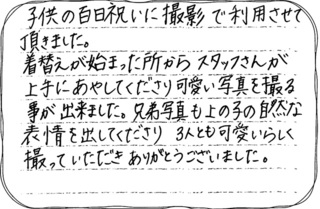 子供の百日祝いに撮影で利用させて
頂きました。
着替えが始まった所からスタッフさんが
上手にあやしてくださり可愛い写真を撮る
事が出来ました。兄弟写真も上の子の自然な
表情を出してくださり 3人とも可愛いらしく
撮っていただきありがとうございました。